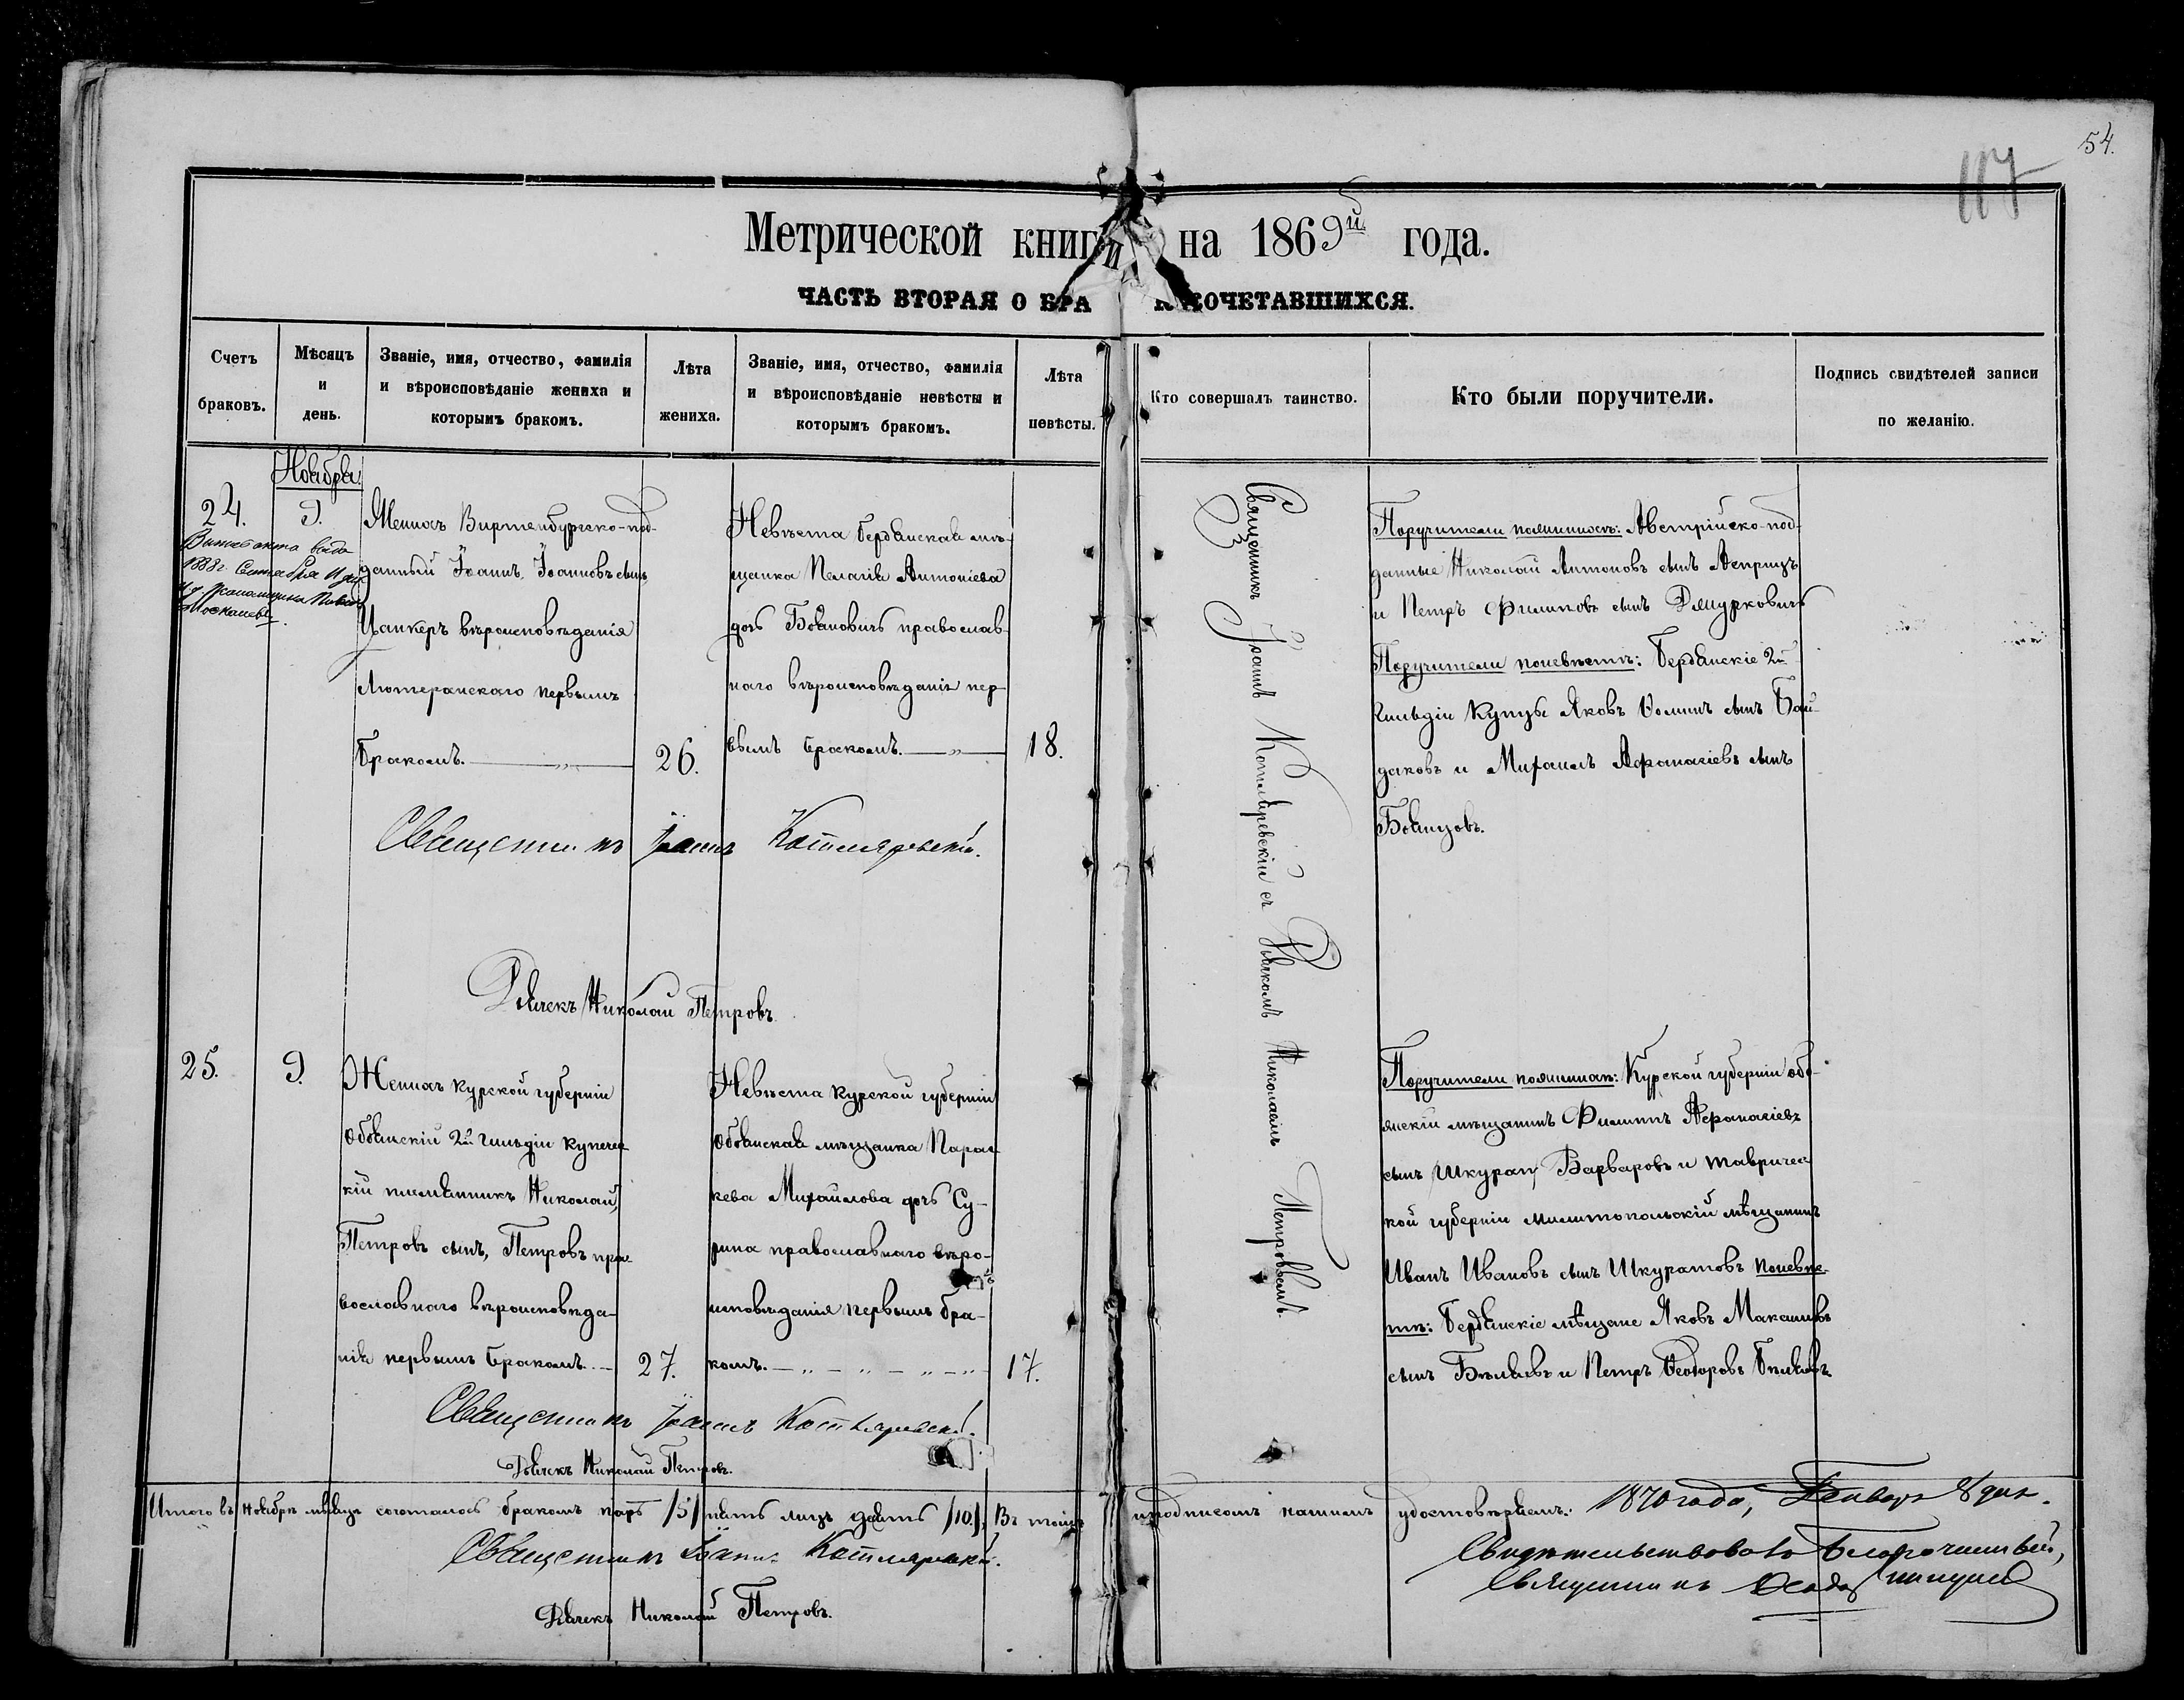 54.
117
Метрической книги на 1869й года.
ЧАСТЬ ВТОРАЯ О БРАКОСОЧЕТАВШИХСЯ.
Счетъ браковъ.
Мѣсяцъ и день.
Званіе, имя, отчество, фамилія
и вѣроисповѣданіе жениха и
которымъ бракомъ.
Лѣта жениха.
Званіе, имя, отчество, фамилія
и вѣроисповѣданіе невѣсты и
которымъ бракомъ.
Лѣта невѣсты.
Кто совершалъ таинство.
Кто были поручители.
Подпись свидѣтелей записи
по желанію.
Ноября
24.
9.
1888г. Сентября
Женихъ Виртенбургско-под-
данный Іоаннъ Іоанновъ сынъ
Цанкеръ вѣроисповѣданія
Лютеранскаго первымъ
бракомъ. — „ —
26.
Невѣста Бердянская мѣ-
щанка Пелагія Антоніева
дочь Бояновичъ православ-
наго вѣроисповѣданія пер-
вымъ бракомъ. — „ —
18.
Священникъ Іоаннъ Котляревскій.
Дьячекъ Николай Петровъ.
Священникъ Іоаннъ Котляревскій съ Дьячкомъ Николаемъ Петровымъ.
Поручители пожениху: Австрійско-под-
данные Николай Антоновъ сынъ
и Петръ Филиповъ сынъ Дмурковичъ
Поручители поневѣстѣ: Бердянскіе 2й
гильдіи купцы Яковъ сынъ Бай-
даковъ и Михаилъ Афанасіевъ сынъ
Боянцовъ.
25.
9.
Женихъ Курской губерніи
Обоянскій 2й гильдіи купечес-
кій племянникъ Николай
Петровъ сынъ, Петровъ пра-
вославнаго вѣроисповѣда-
нія первымъ бракомъ. —
27.
Невѣста Курской губерніи
Обоянская мѣщанка Парас-
кева Михайлова дочь Су-
рина православнаго вѣро-
исповѣданія первымъ бра-
комъ. — „ — „ — „ — „ —
17.
Священникъ Іоаннъ Котляревскій.
Дьячекъ Николай Петровъ.
Поручители пожениху: Курской губерніи обо-
янскій мѣщанинъ Филиппъ Афанасіевъ
сынъ Варваровъ и Тавричес-
кой губерніи Милитопольскій мѣщанинъ
Иванъ Ивановъ сынъ Шкуратовъ поневѣс-
тѣ: Бердянскіе мѣщане Яковъ Максимовъ
сынъ Бѣляевъ и Петръ Феодоровъ Бѣляевъ
Итого въ Ноябрѣ мѣсяцѣ сочеталось бракомъ паръ /5/ пять лицъ десять /10/. Въ томъ и подписомъ нашимъ удостовѣряемъ: 1870 года, Генваря 8 дня.
Священникъ Іоаннъ Котляревскій.
Дьячекъ Николай Петровъ.
Свидѣтельствовалъ Благочинный,
Священникъ